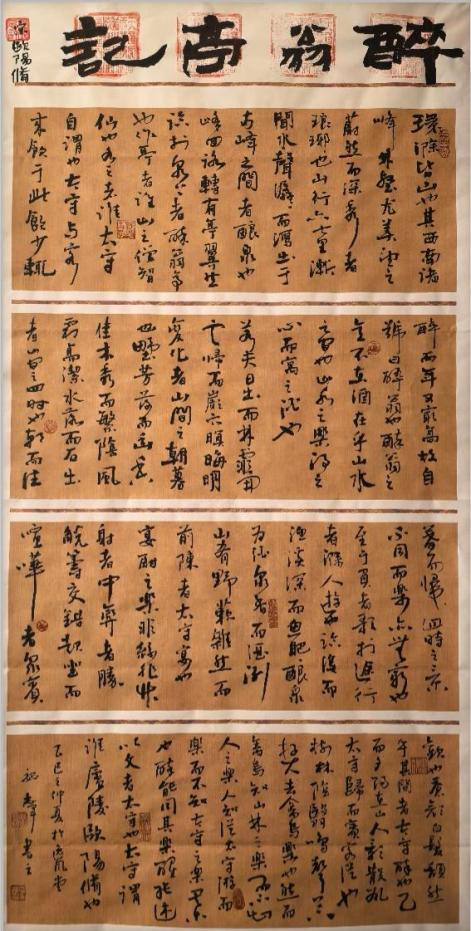 醉翁亭記
宋歐陽脩
環滁皆山也其西南諸
峰林壑尤美望之
蔚然而深秀者
瑯琊也山行六七里漸
聞水聲潺潺而瀉出于
兩峰之間者釀泉也
峰回路轉有亭翼然
臨于泉上者醉翁亭
也作亭者誰山之僧智
仙也名之者誰太守
自謂也太守與客
來飲于此飲少輒
醉而年又最高故自
號曰醉翁也醉翁之
意不在酒在乎山水
之間也山水之樂得之
心而寓之酒也
若夫日出而林霏開
雲歸而巖穴暝晦明
變化者山間之朝暮
也野芳發而幽香
佳木秀而繁陰風
霜高潔水落而石出
者山間之四時也朝而往
暮而歸四時之景
不同而樂亦無窮也
至于負者歌于途行
者滁人遊也臨溪而
漁溪深而魚肥釀泉
為酒泉香而酒洌
山肴野蔌雜然而
前陳者太守宴也
宴酣之樂非絲非竹
射者中弈者勝
觥籌交錯起坐而
諠嘩者眾賓
歡也蒼顏白髮頹然
乎其間者太守醉也已
而夕陽在山人影散亂
太守歸而賓客從也
樹林陰翳鳴聲上下
遊人去而禽鳥樂也然而
禽鳥知山林之樂而不知
人之樂人知從太守遊而
樂而不知太守之樂其樂
也醉能同其樂醒能述
以文者太守也太守謂
誰廬陵歐陽脩也
乙巳之仲夏於
書之